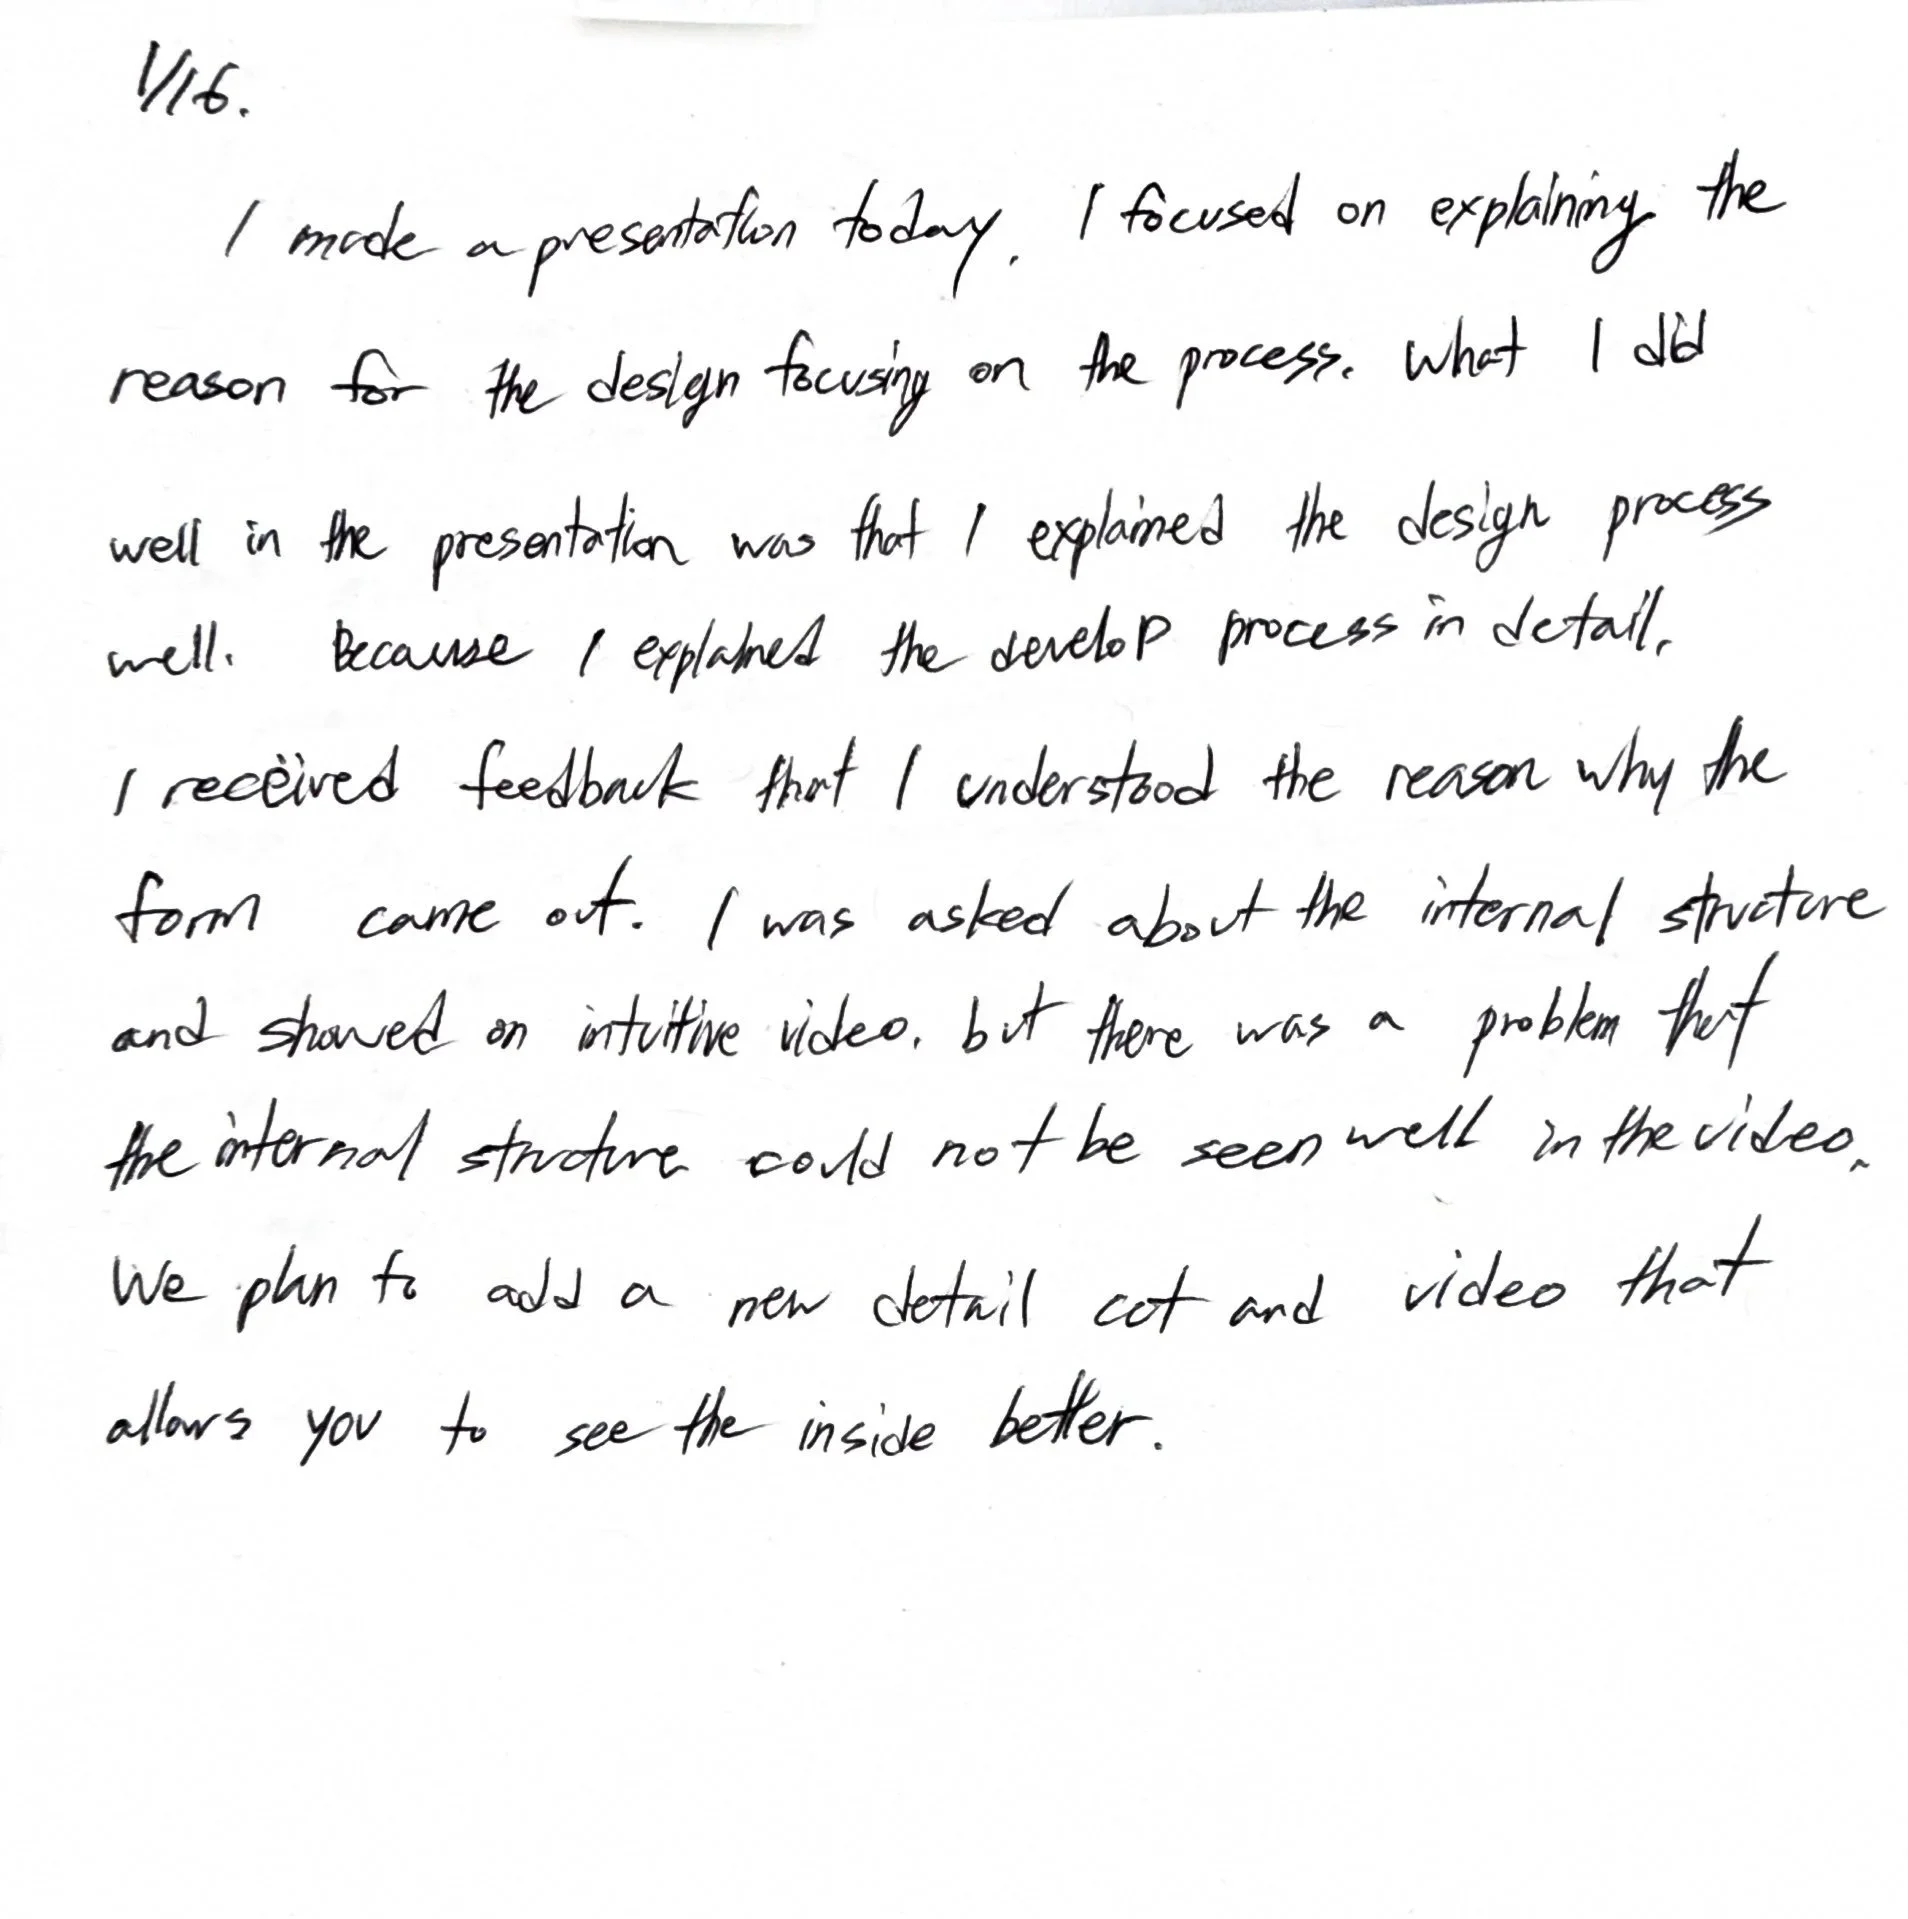 1/16.
I made a presentation today. I focused on explaining the
reason for the design focusing on the process. What I did
well in the presentation was that I explained the design process
well. Because I explained the develop process in detail.
I received feedback that I understood the reason why the
form came out. I was asked about the internal structure
and showed an intuitive video. but there was a problem that
the internal structure could not be seen well in the video.
We plan to add a new detail cut and video that
allows you to see the inside better.